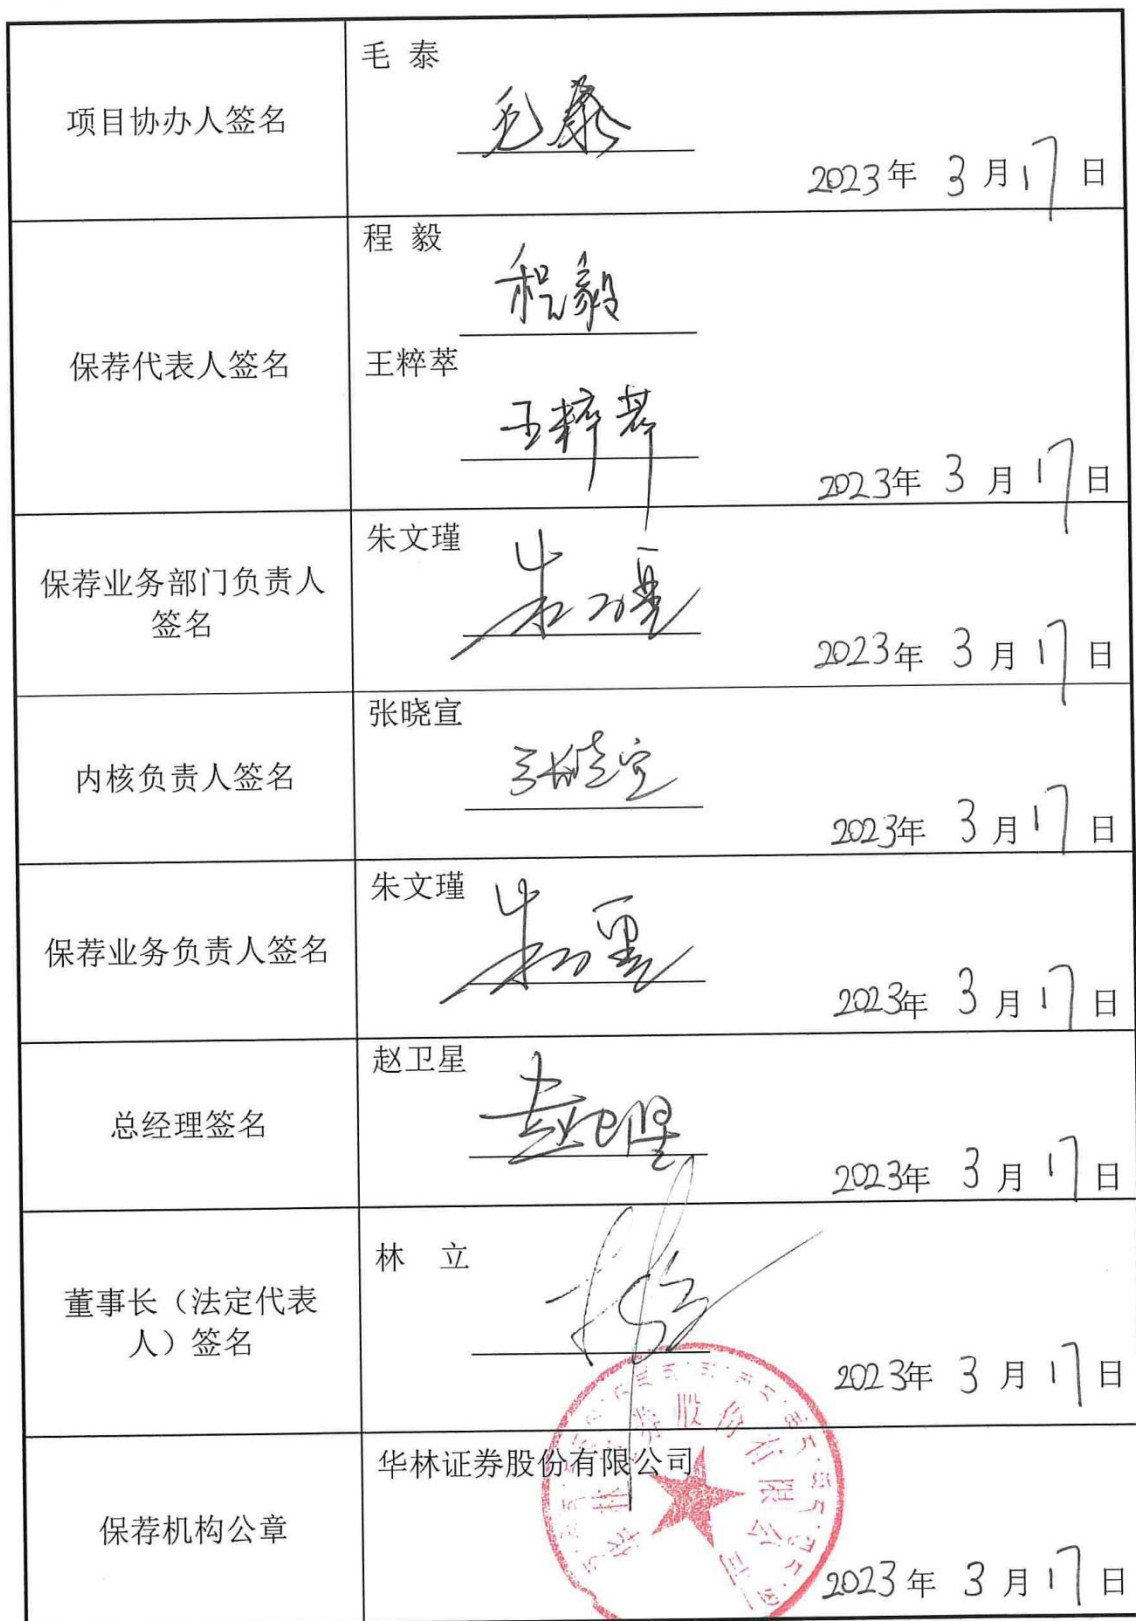 项目协办人签名
毛 泰
毛泰
2023年 3 月 17 日
保荐代表人签名
程 毅
程毅
王粹萃
王粹萃
2023年 3 月 17 日
保荐业务部门负责人
签名
朱文瑾
朱文瑾
2023年 3 月 17 日
内核负责人签名
张晓宣
张晓宣
2023年 3 月 17 日
保荐业务负责人签名
朱文瑾
朱文瑾
2023年 3 月 17 日
总经理签名
赵卫星
赵卫星
2023年 3 月 17 日
董事长（法定代表
人）签名
林 立
林立
2023年 3 月 17 日
保荐机构公章
华林证券股份有限公司
华林证券股份有限公司
2023年 3 月 17 日